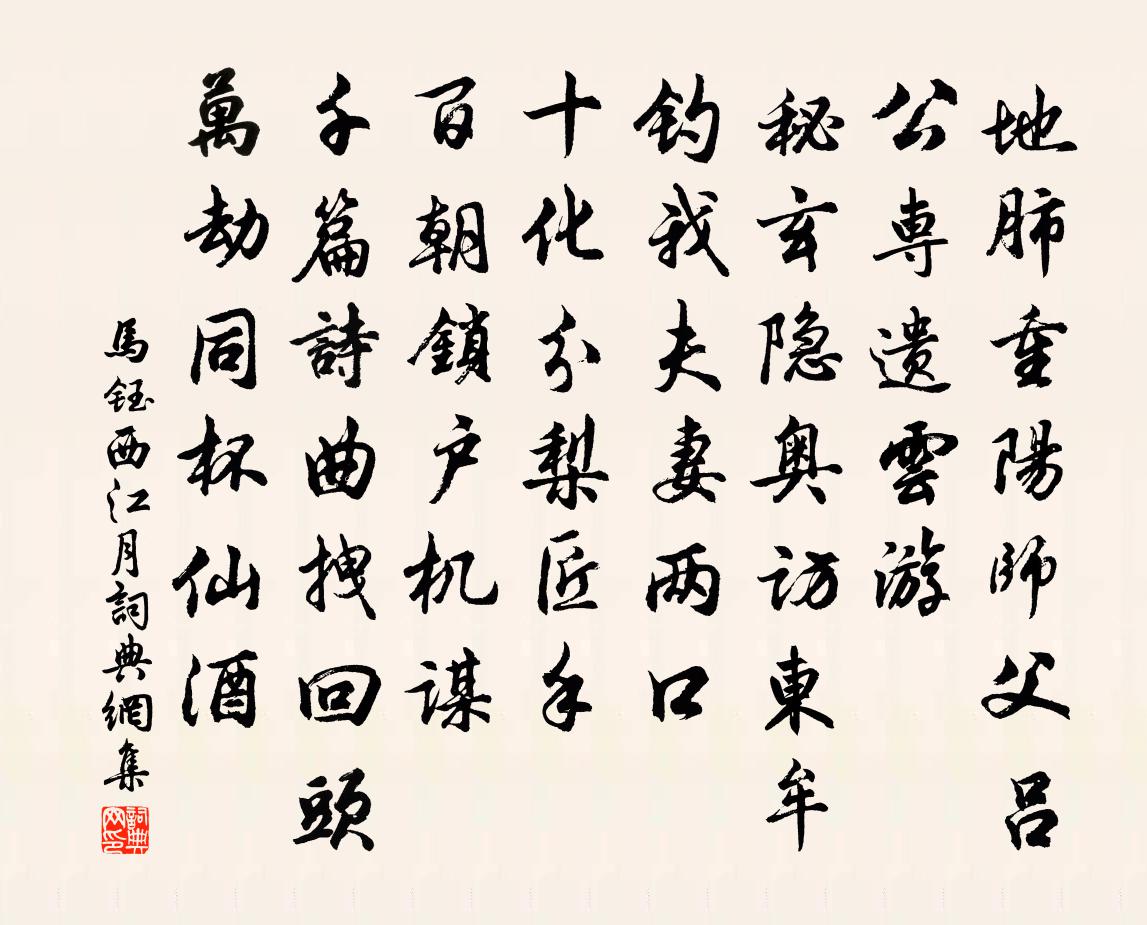 地肺重陽師父吕
公専遗雲游
秘玄隐奥访東牟
钓我夫妻两口
十化分梨匠手
百朝鎖户机谋
千篇詩曲拽回頭
萬劫同杯仙酒
馬鈺西江月詞典網集
詞典网印